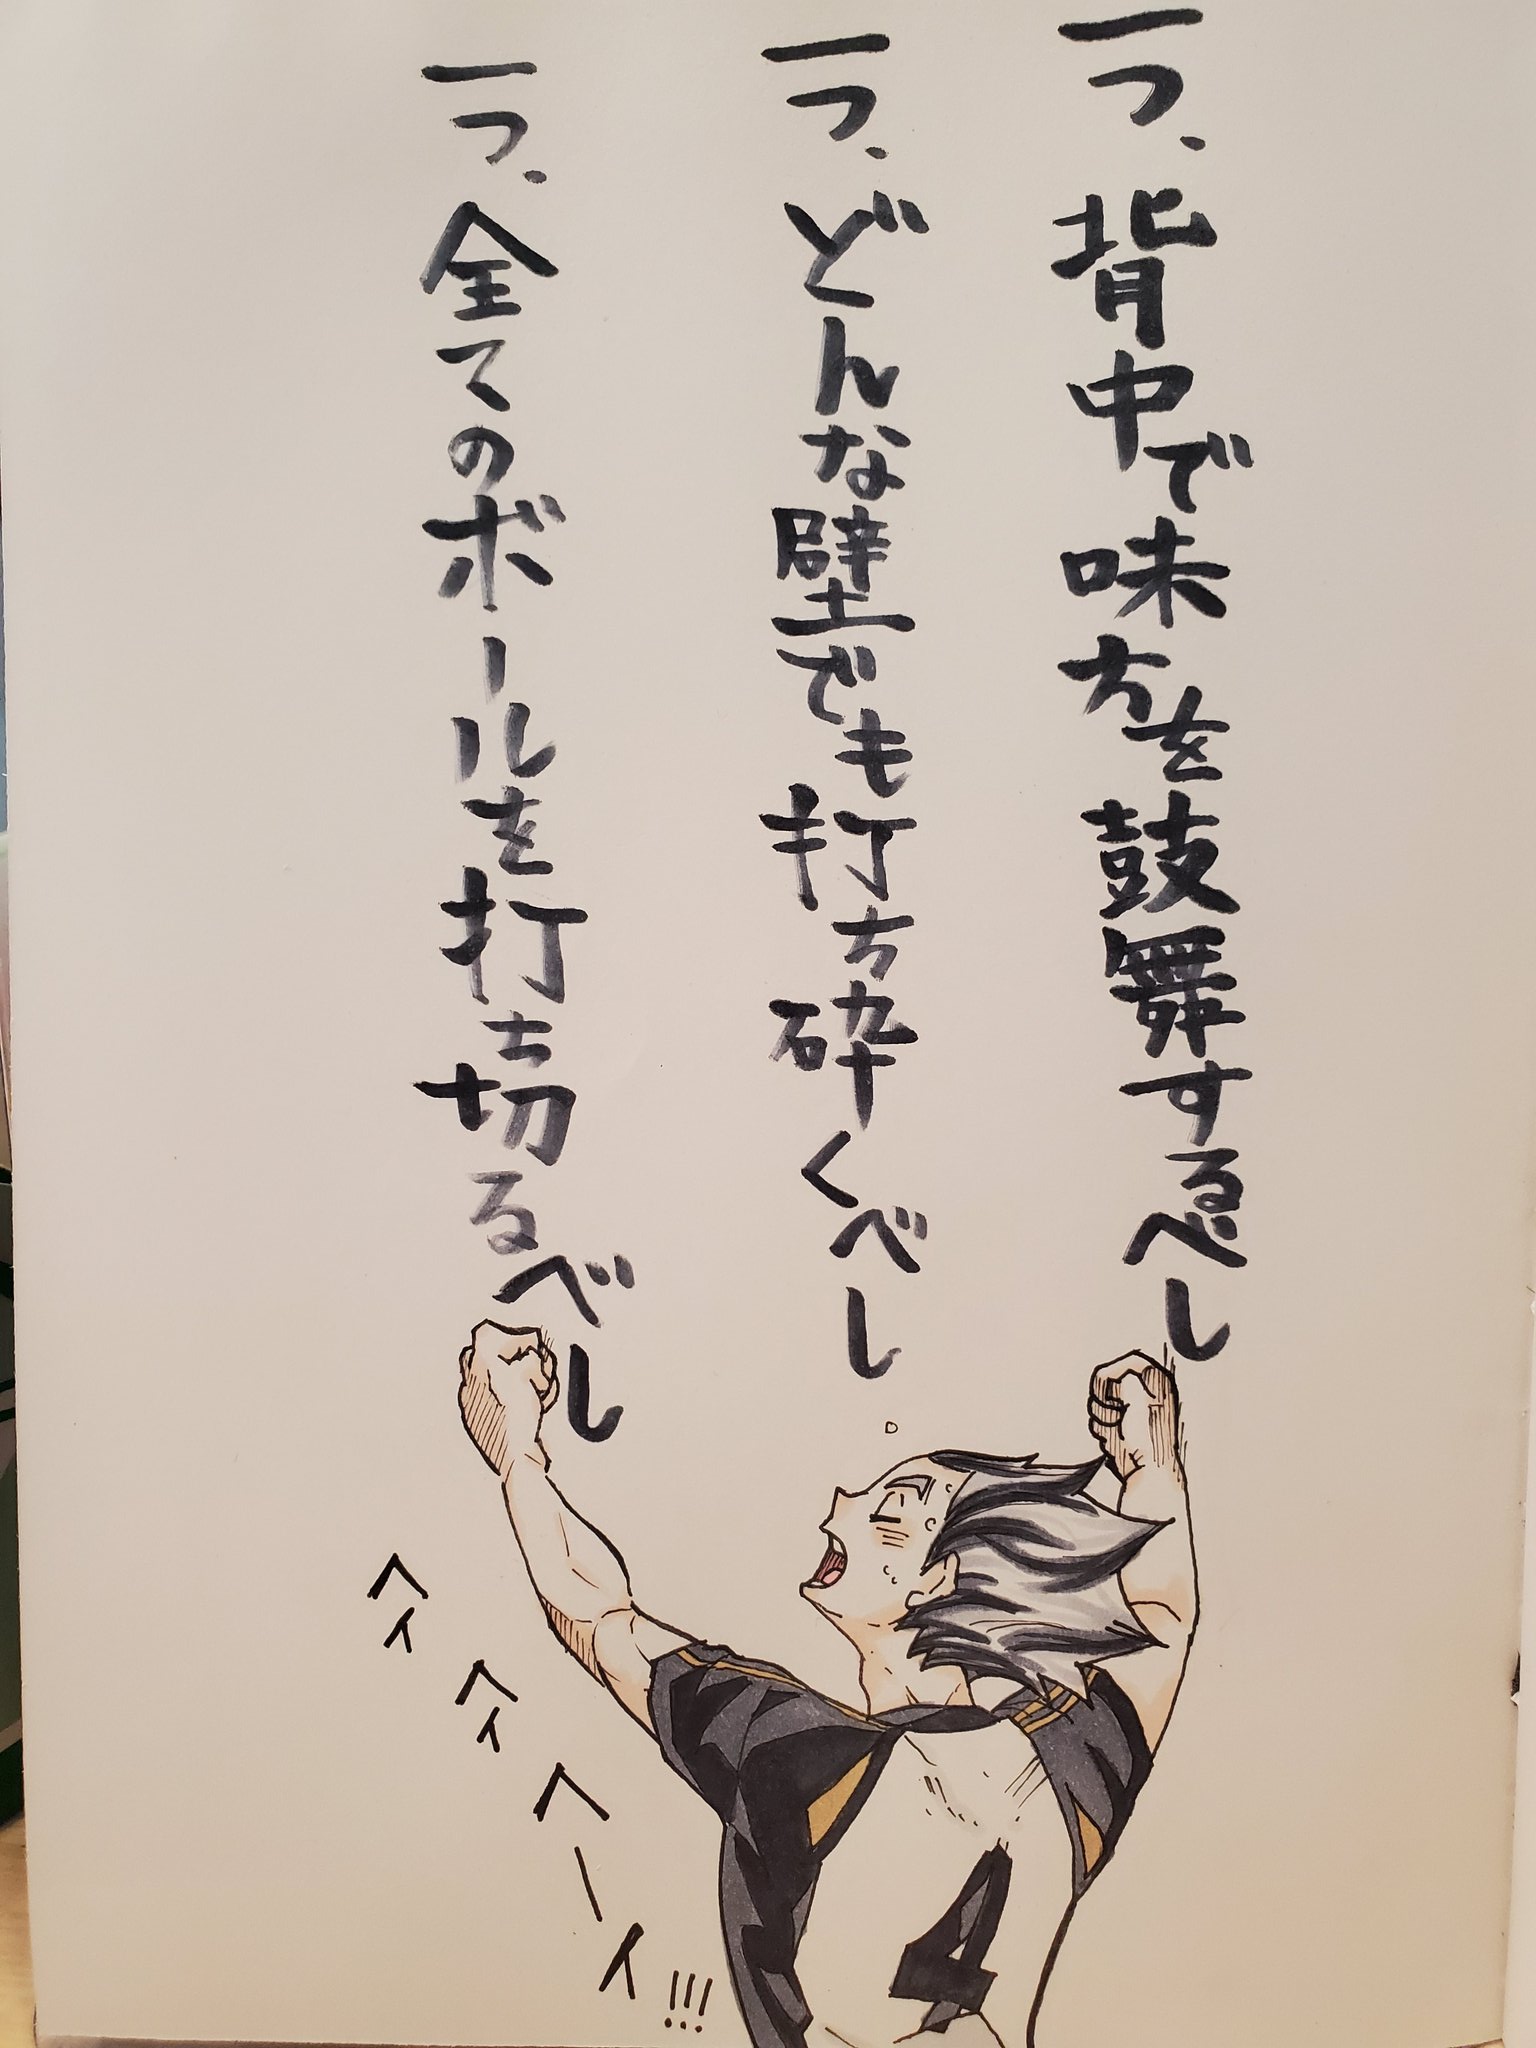 一つ、背中で味方を鼓舞するべし
一つ、どんな壁でも打ち砕くべし
一つ、全てのボールを打ち切るべし
ヘイ
ヘイ
ヘーイ!!!
4